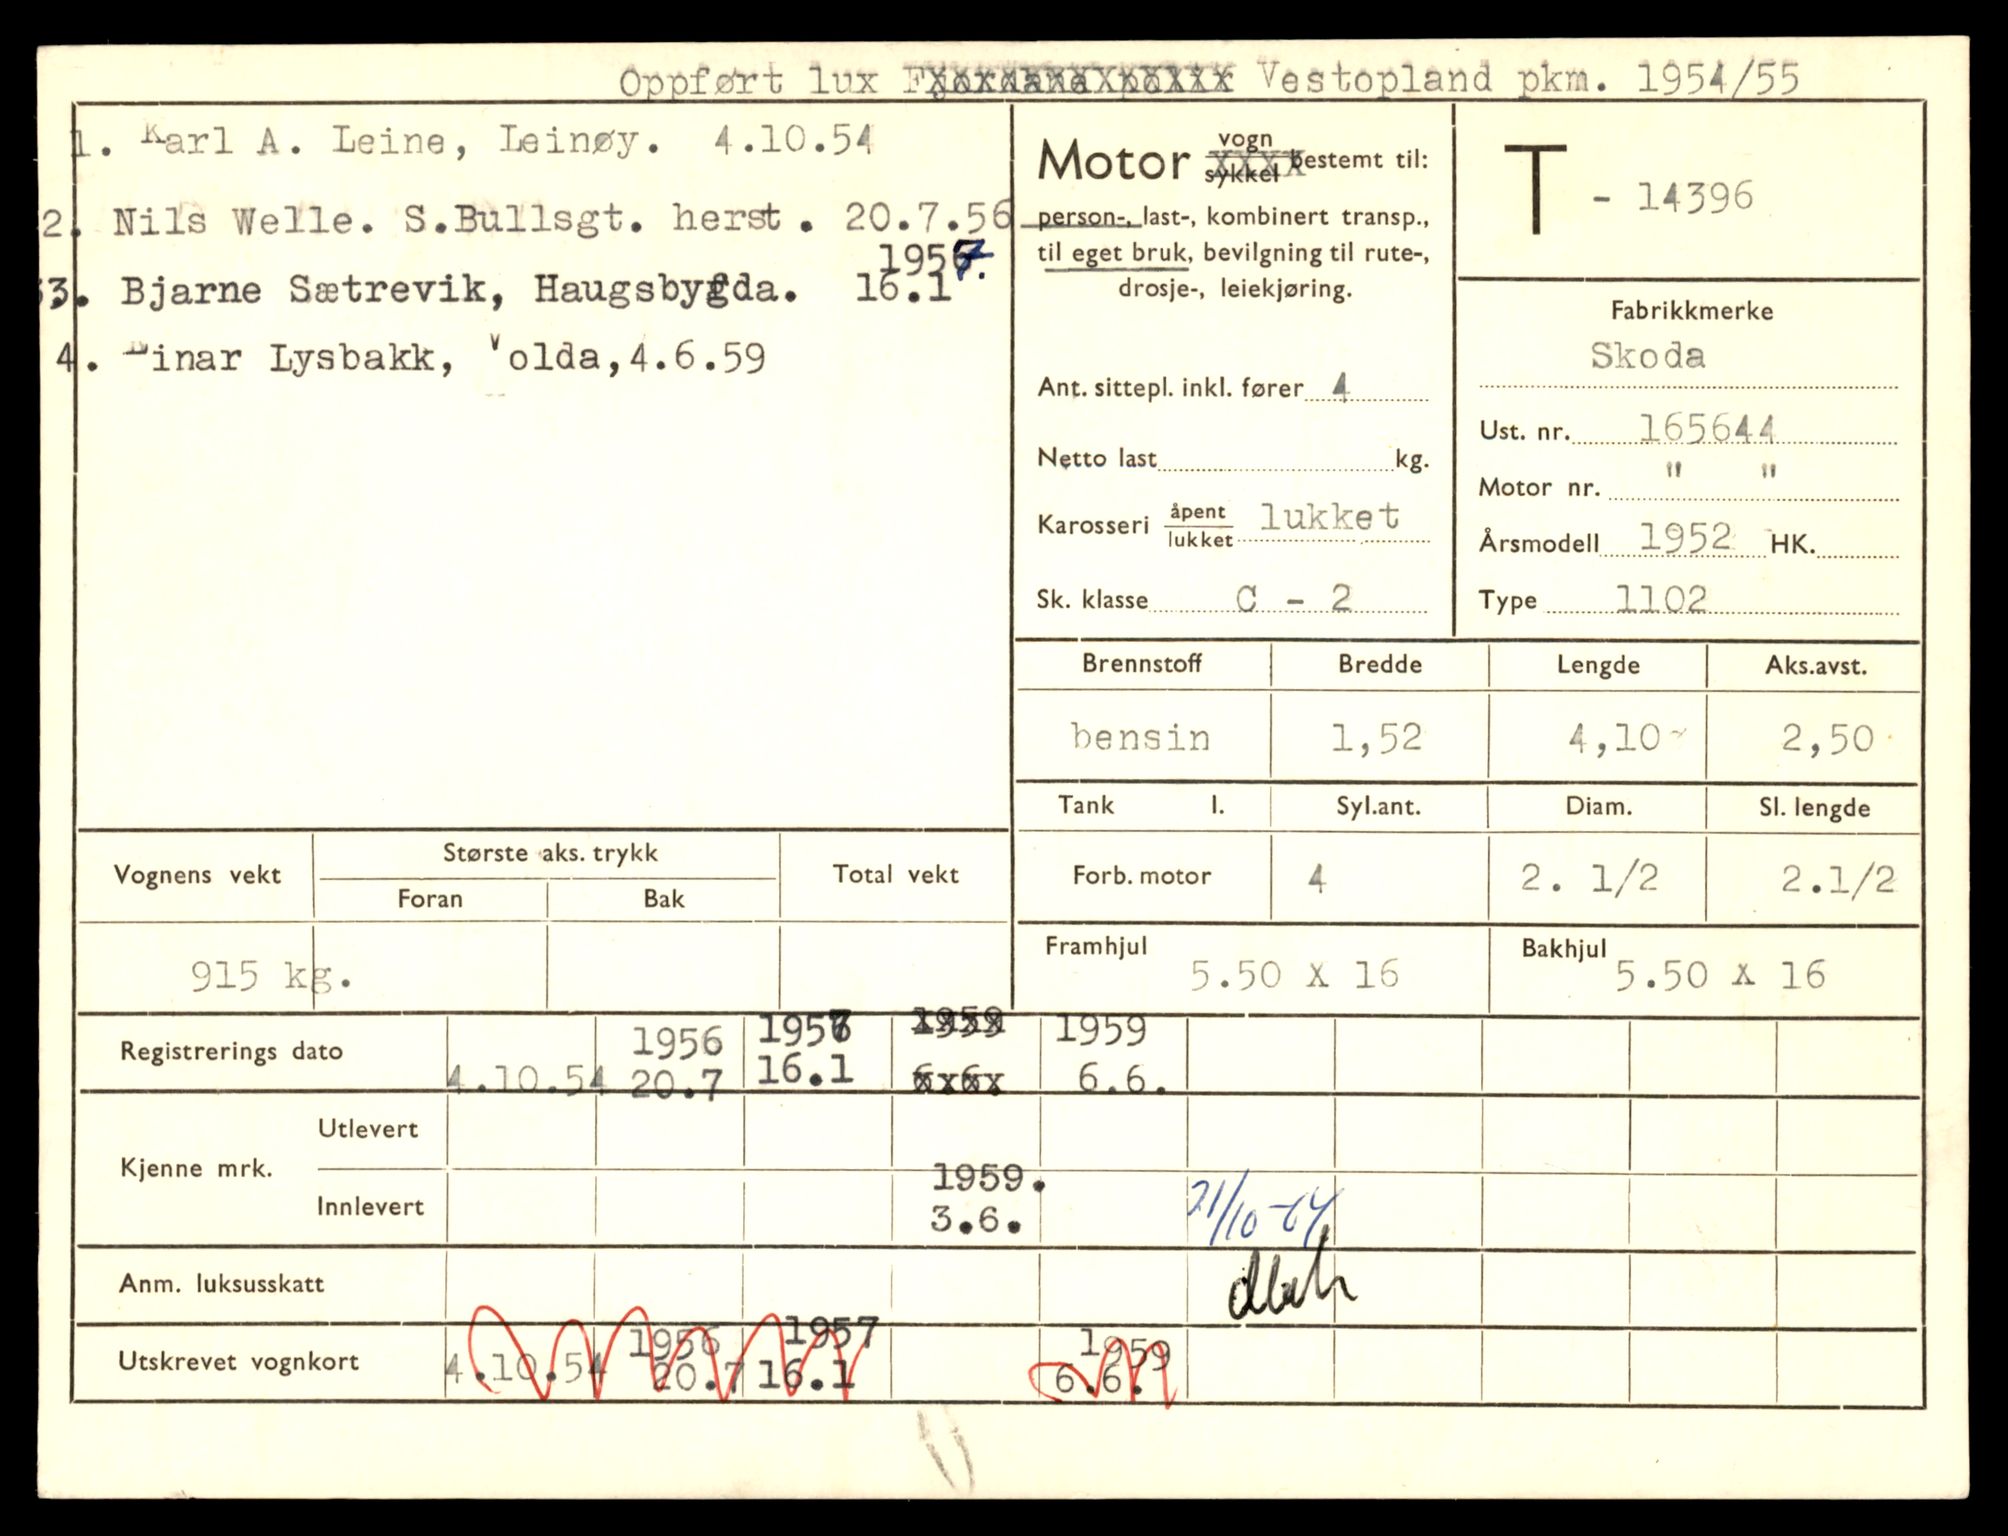 Oppført lux Vestopland pkm. 1954/55
1. Karl A. Leine, Leinøy. 4.10.54
2. Nils Welle. S.Bullsgt. herst. 20.7.56
1957.
3. Bjarne Sætrevik, Haugsbygda. 16.1
4. Einar Lysbakk, Volda, 4.6.59
Motor vogn sykkel bestemt til:
person-, last-, kombinert transp.,
til eget bruk, bevilgning til rute-,
drosje-, leiekjøring.
Ant. sittepl. inkl. fører 4
Netto last kg.
Karosseri åpent lukket lukket
Sk. klasse C - 2
T - 14396
Fabrikkmerke
Skoda
Ust. nr. 165644
Motor nr. " "
Årsmodell 1952 HK.
Type 1102
Brennstoff Bredde Lengde Aks.avst.
bensin 1,52 4,10 2,50
Tank l. Syl.ant. Diam. Sl. lengde
Forb. motor 4 2. 1/2 2.1/2
Framhjul 5.50 X 16 Bakhjul 5.50 X 16
Vognens vekt Største aks. trykk Total vekt
Foran Bak
915 kg.
1956 1957 1959 1959
Registrerings dato 4.10.54 20.7 16.1 6.6.
Kjenne mrk. Utlevert
1959.
Innlevert 3.6. 21/10-64
Anm. luksusskatt
1956 1957 1959
Utskrevet vognkort 4.10.54 20.7 16.1 6.6.